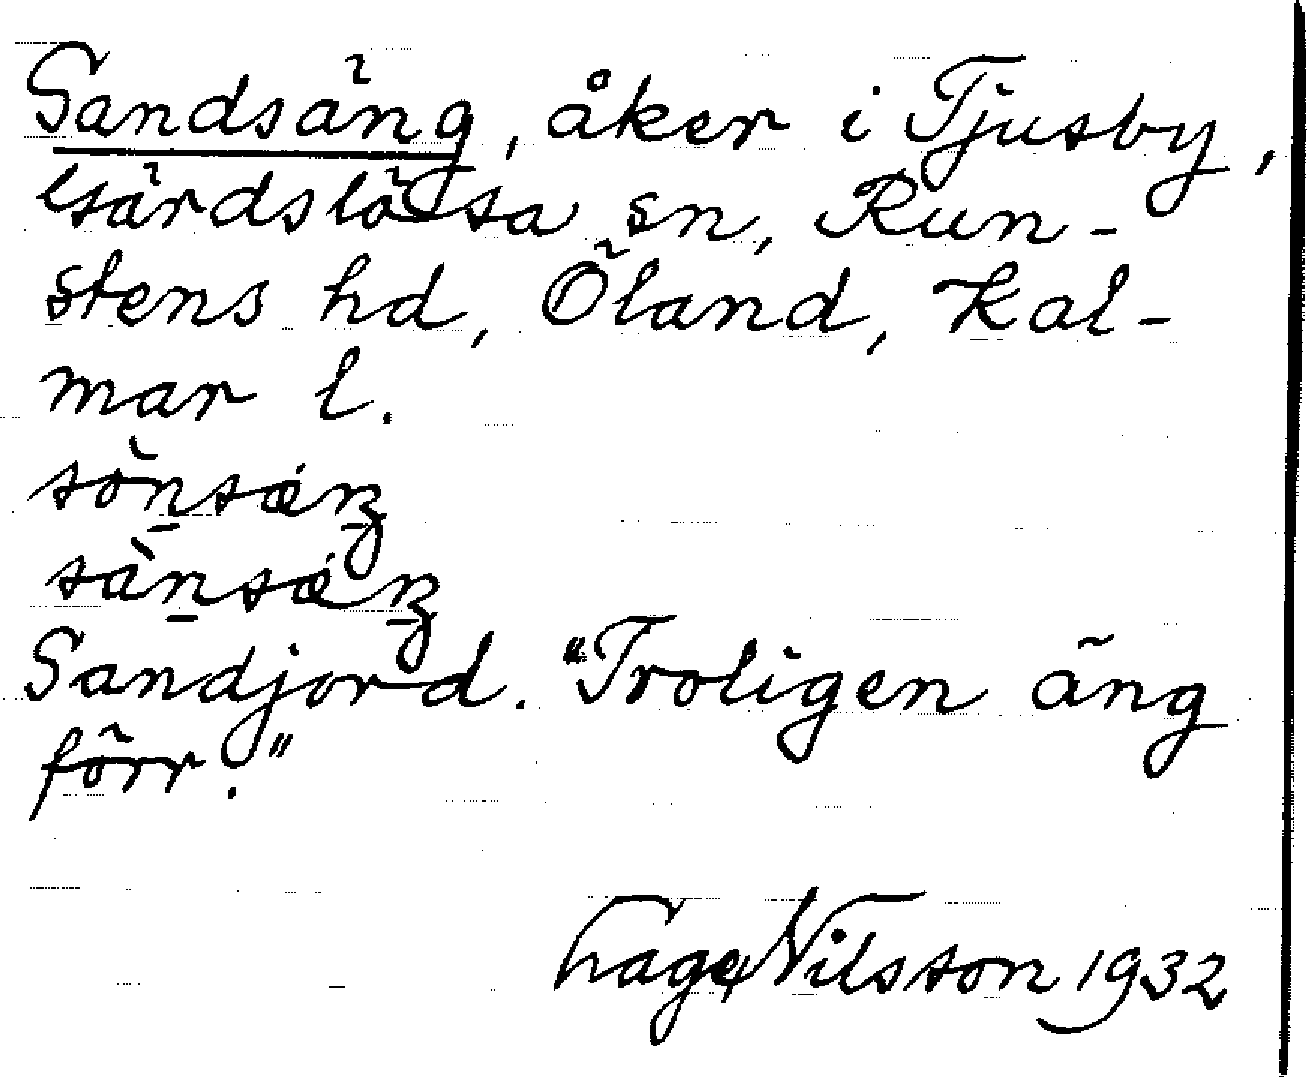 Sandsäng, åker i Tjusby,
Gärdslösa sn, Run-
stens hd, Öland, Kal-
mar l.
Sandjord. "Troligen äng
förr."
Nilsson 1932